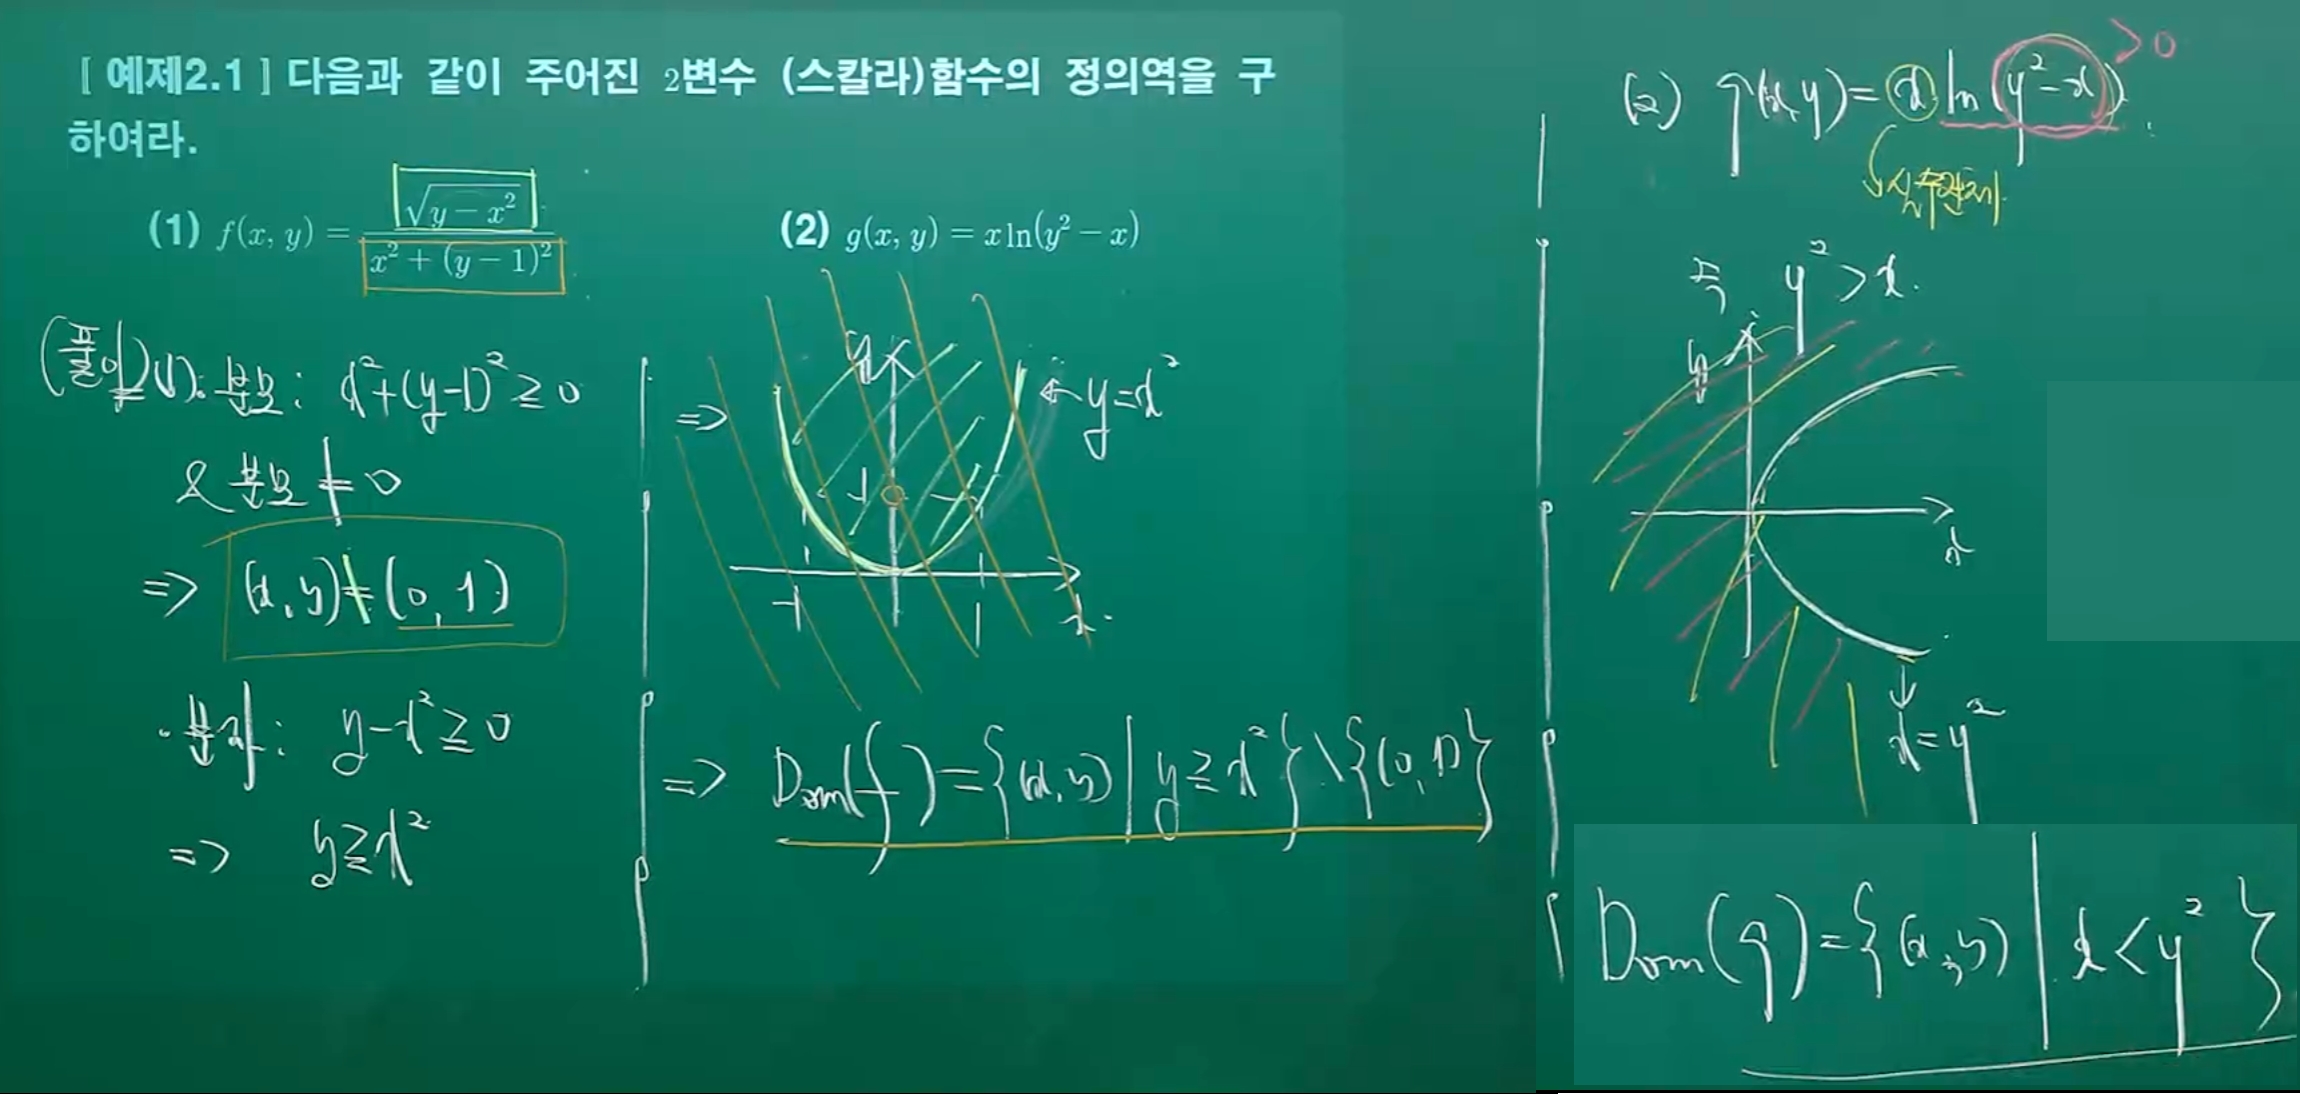 [ 예제2.1 ] 다음과 같이 주어진 2변수 (스칼라)함수의 정의역을 구
하여라.
(1) f(x, y) = \frac{\sqrt{y - x^2}}{x^2 + (y - 1)^2}
(2) g(x, y) = x ln(y² - x)
(풀이) (1). 분모: x²+(y-1)² ≥ 0
& 분모 ≠ 0
=> (x, y) ≠ (0, 1)
· 분자: y-x² ≥ 0
=> y ≥ x²
=>
y
← y=x²
1
-1
1
x
=> Dom(f) = {(x, y) | y ≥ x²} \ {(0, 1)}
(2) g(x, y) = x ln(y²-x) > 0
실수전체
즉 y² > x.
y
x
↓
x = y²
Dom(g) = {(x, y) | x < y²}